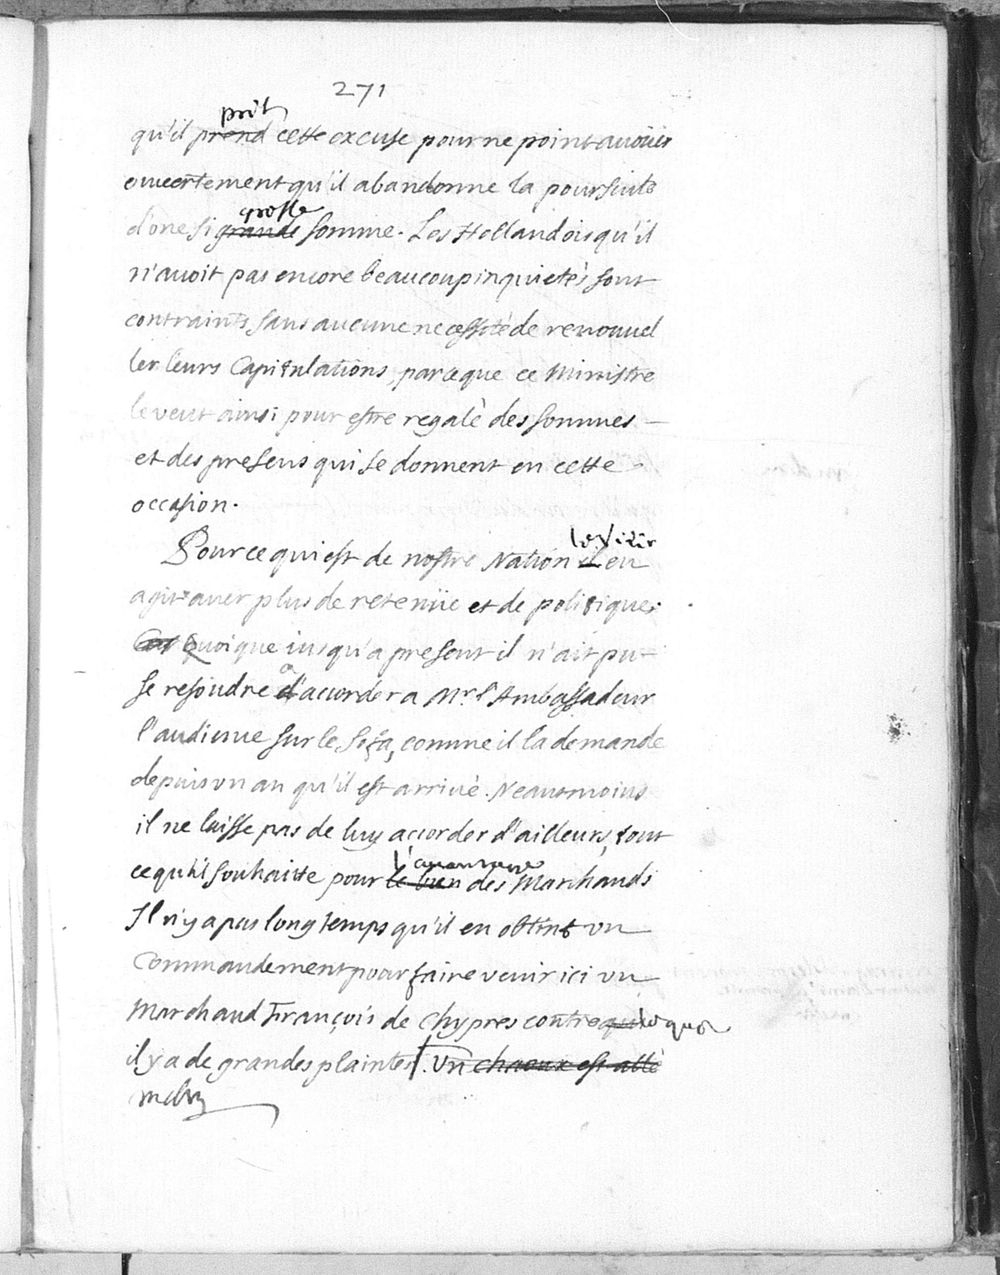 271
prit
qu'il prend cette excuse pour ne point avoüer
ouvertement qu'il abandonne la poursuite
grosse
d'une si grande somme. Les Hollandois qu'il
n'avoit pas encore beaucoup inquietés sont
contraints sans aucune necessité de renouvel
ler leurs Capitulations, parceque ce Ministre
le veut ainsi pour estre regalé des sommes
et des presens qui se donnent en cette
occasion.
le Visir
Pour ce qui est de nostre Nation il en
agit avec plus de retenüe et de politique.
Quoique iusqu'a present il n'ait pu
se resoudre d'accorder a Mr. l'Ambassadeur
l'audience sur le Sofa, comme il la demande
depuis un an qu'il est arrivé. Neantmoins
il ne laisse pas de luy accorder d'ailleurs, tout
l'avantage
ce qu'il souhaitte pour le bien des Marchands
Il n'y a pas long temps qu'il en obtint un
Commandement pour faire venir ici un
Marchand François de Chypres contre qui lequel
il y a de grandes plaintes. Un chaoux est allé